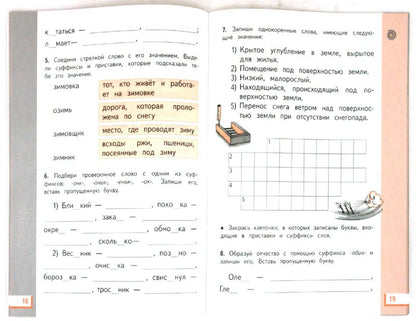 к__таться — ____________, ____________
л__мает— ____________, ____________
5. Соедини стрелкой слово с его значением. Выдели суффиксы и приставки, которые подсказали тебе это значение.
зимовка
тот, кто живёт и работает на зимовке
озимь
дорога, которая проложена по снегу
зимовщик
место, где проводят зиму
зимник
всходы ржи, пшеницы, посеянные под зиму
6. Подбери проверочное слово с одним из суффиксов: -очк-, -оньк-, -еньк-, -ок-. Запиши его, вставь пропущенную букву.
1) Бли__кий — ____________, похо__ка —
____________, зака__ — ____________,
окре__ — ____________, обно__ка —
____________, сколь__ко— ____________
2) Вес__ник — ____________, поз__но —
____________, очис__ка — ____________,
бороз__ка — ____________, свис__нул —
____________, трос__ник — ____________
18
7. Запиши однокоренные слова, имеющие следующие значения:
1) Крытое углубление в земле, вырытое для жилья.
2) Помещение под поверхностью земли.
3) Низкий, малорослый.
4) Находящийся, происходящий под поверхностью земли.
5) Перенос снега ветром над поверхностью земли при отсутствии снегопада.
1
2
3
4
5
• Закрась клеточки, в которых записаны буквы, входящие в приставки и суффиксы слов.
8. Образуй отчество с помощью суффикса -ович- и запиши его. Вставь пропущенную букву.
Оле__ — ____________
Гле__ — ____________
19